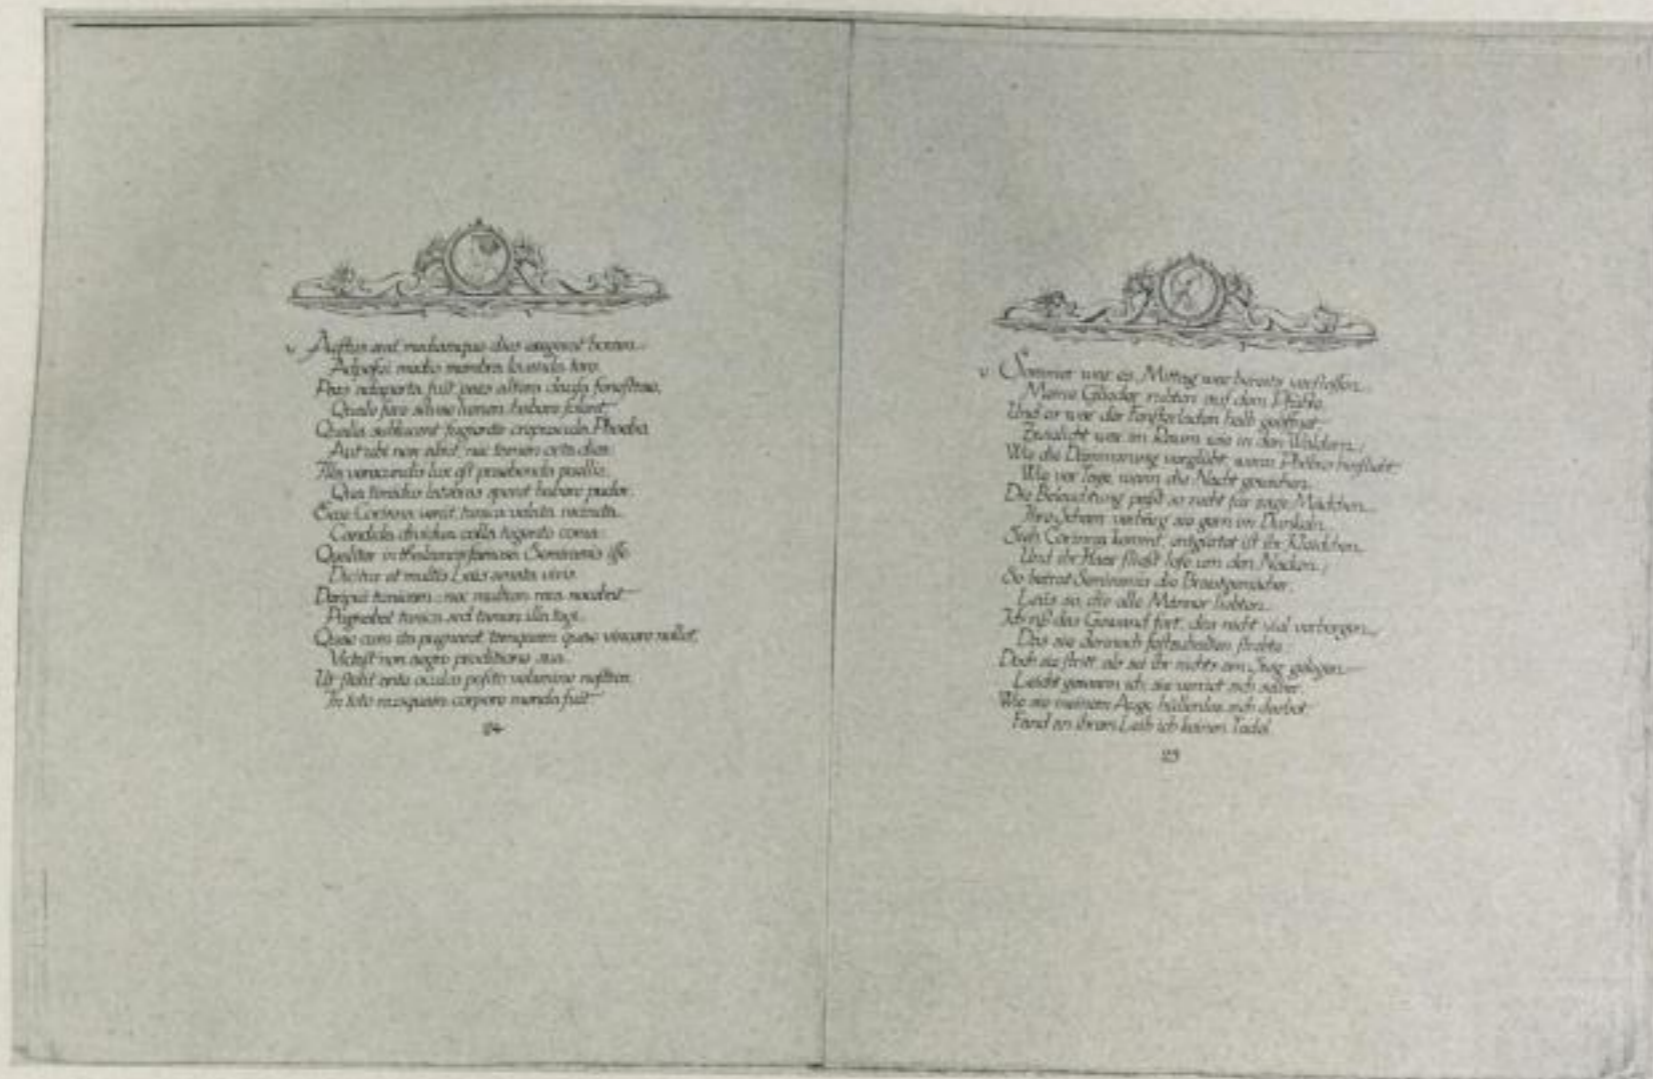 v Aestus erat, mediamque dies exegerat horam.
Adposui medio membra levanda toro.
Pars adaperta fuit, pars altera clausa fenestrae,
Quale fere silvae lumen habere solent,
Qualia sublucent fugiente crepuscula Phoebo,
Aut ubi nox abiit, nec tamen orta dies.
Illa verecundis lux est praebenda puellis,
Qua timidus latebras speret habere pudor.
Ecce Corinna venit, tunica velata recincta,
Candida dividua colla tegente coma:
Qualiter in thalamos famosa Semiramis isse
Dicitur et multis Lais amata viris.
Deripui tunicam: nec multum rara nocebat
Pugnabat tunica sed tamen illa tegi.
Quae cum ita pugnaret, tamquam quae vincere nollet,
Victast non aegre proditione sua.
Ut stetit ante oculos posito velamine nostros,
In toto nusquam corpore menda fuit
24
v Sommer war es, Mittag war bereits verflossen.
Meine Glieder ruhten auf dem Pfühle.
Und es war der Fensterladen halb geöffnet
war im Raum wie in den Wäldern;
Wie die Dämmerung verglüht, wenn Phöbus hinflieht
Wie vor Tage, wenn die Nacht gewichen.
Die Beleuchtung paßt so recht für zage Mädchen.
Ihre Scham verbärg sie gern im Dunkeln.
Sieh Corinna kommt, entgürtet ist ihr Kleidchen,
Und ihr Haar fließt lose um den Nacken;
So betrat Semiramis die Brautgemächer,
Lais so, die alle Männer liebten.
Ich riß das Gewand fort, das nicht viel verborgen,
Das sie dennoch festzuhalten strebte.
Doch sie stritt, als sei ihr nichts am Sieg gelegen
Leicht gewann ich, sie verriet sich selber.
Wie sie meinem Auge hüllenlos sich darbot
Fand an ihrem Leib ich keinen Tadel.
25